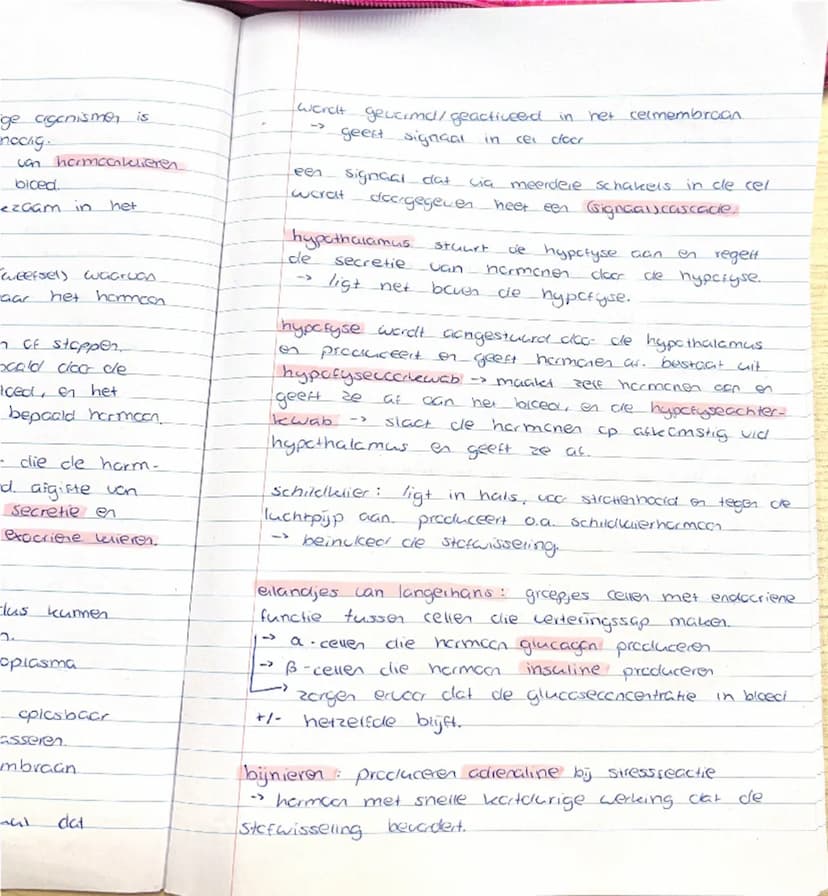 ge organismen is
nodig.
van hormoonklieren
bloed.
ezaam in het
(weefsel) waarvan
aar het hormoon
n of stoppen.
paald door de
loed, en het
bepaald hormoon.
- die de horm-
d. afgifte van
secretie en
exocriene klieren.
dus kunnen
n.
oplasma
oplosbaar
asseren.
mbraan
dat
wordt gevormd/geactiveerd in het celmembraan
→ geeft signaal in cel door
een signaal dat via meerdere schakels in de cel
wordt doorgegeven heet een (signaal)cascade.
hypothalamus stuurt de hypofyse aan en regelt
de secretie van hormonen door de hypofyse.
→ ligt net boven de hypofyse.
hypofyse wordt aangestuurd door de hypothalamus
en produceert en geeft hormonen af. bestaat uit
hypofysevoorkwab → maakt zelf hormonen aan en
geeft ze af aan het bloed, en de hypofyseachter-
kwab → slaat de hormonen op afkomstig v/d
hypothalamus en geeft ze af.
schildklier: ligt in hals, voor strottenhoofd en tegen de
luchtpijp aan. produceert o.a. schildklierhormoon
→ beinvloed de stofwisseling.
eilandjes van langerhans: groepjes cellen met endocriene
functie tussen cellen die verteringssap maken.
→ α-cellen die hormoon glucagon produceren
→ β-cellen die hormoon insuline produceren
→ zorgen ervoor dat de glucoseconcentratie in bloed
+/- hetzelfde blijft.
bijnieren: produceren adrenaline bij stressreactie
→ hormoon met snelle kortdurige werking dat de
stofwisseling bevordert.